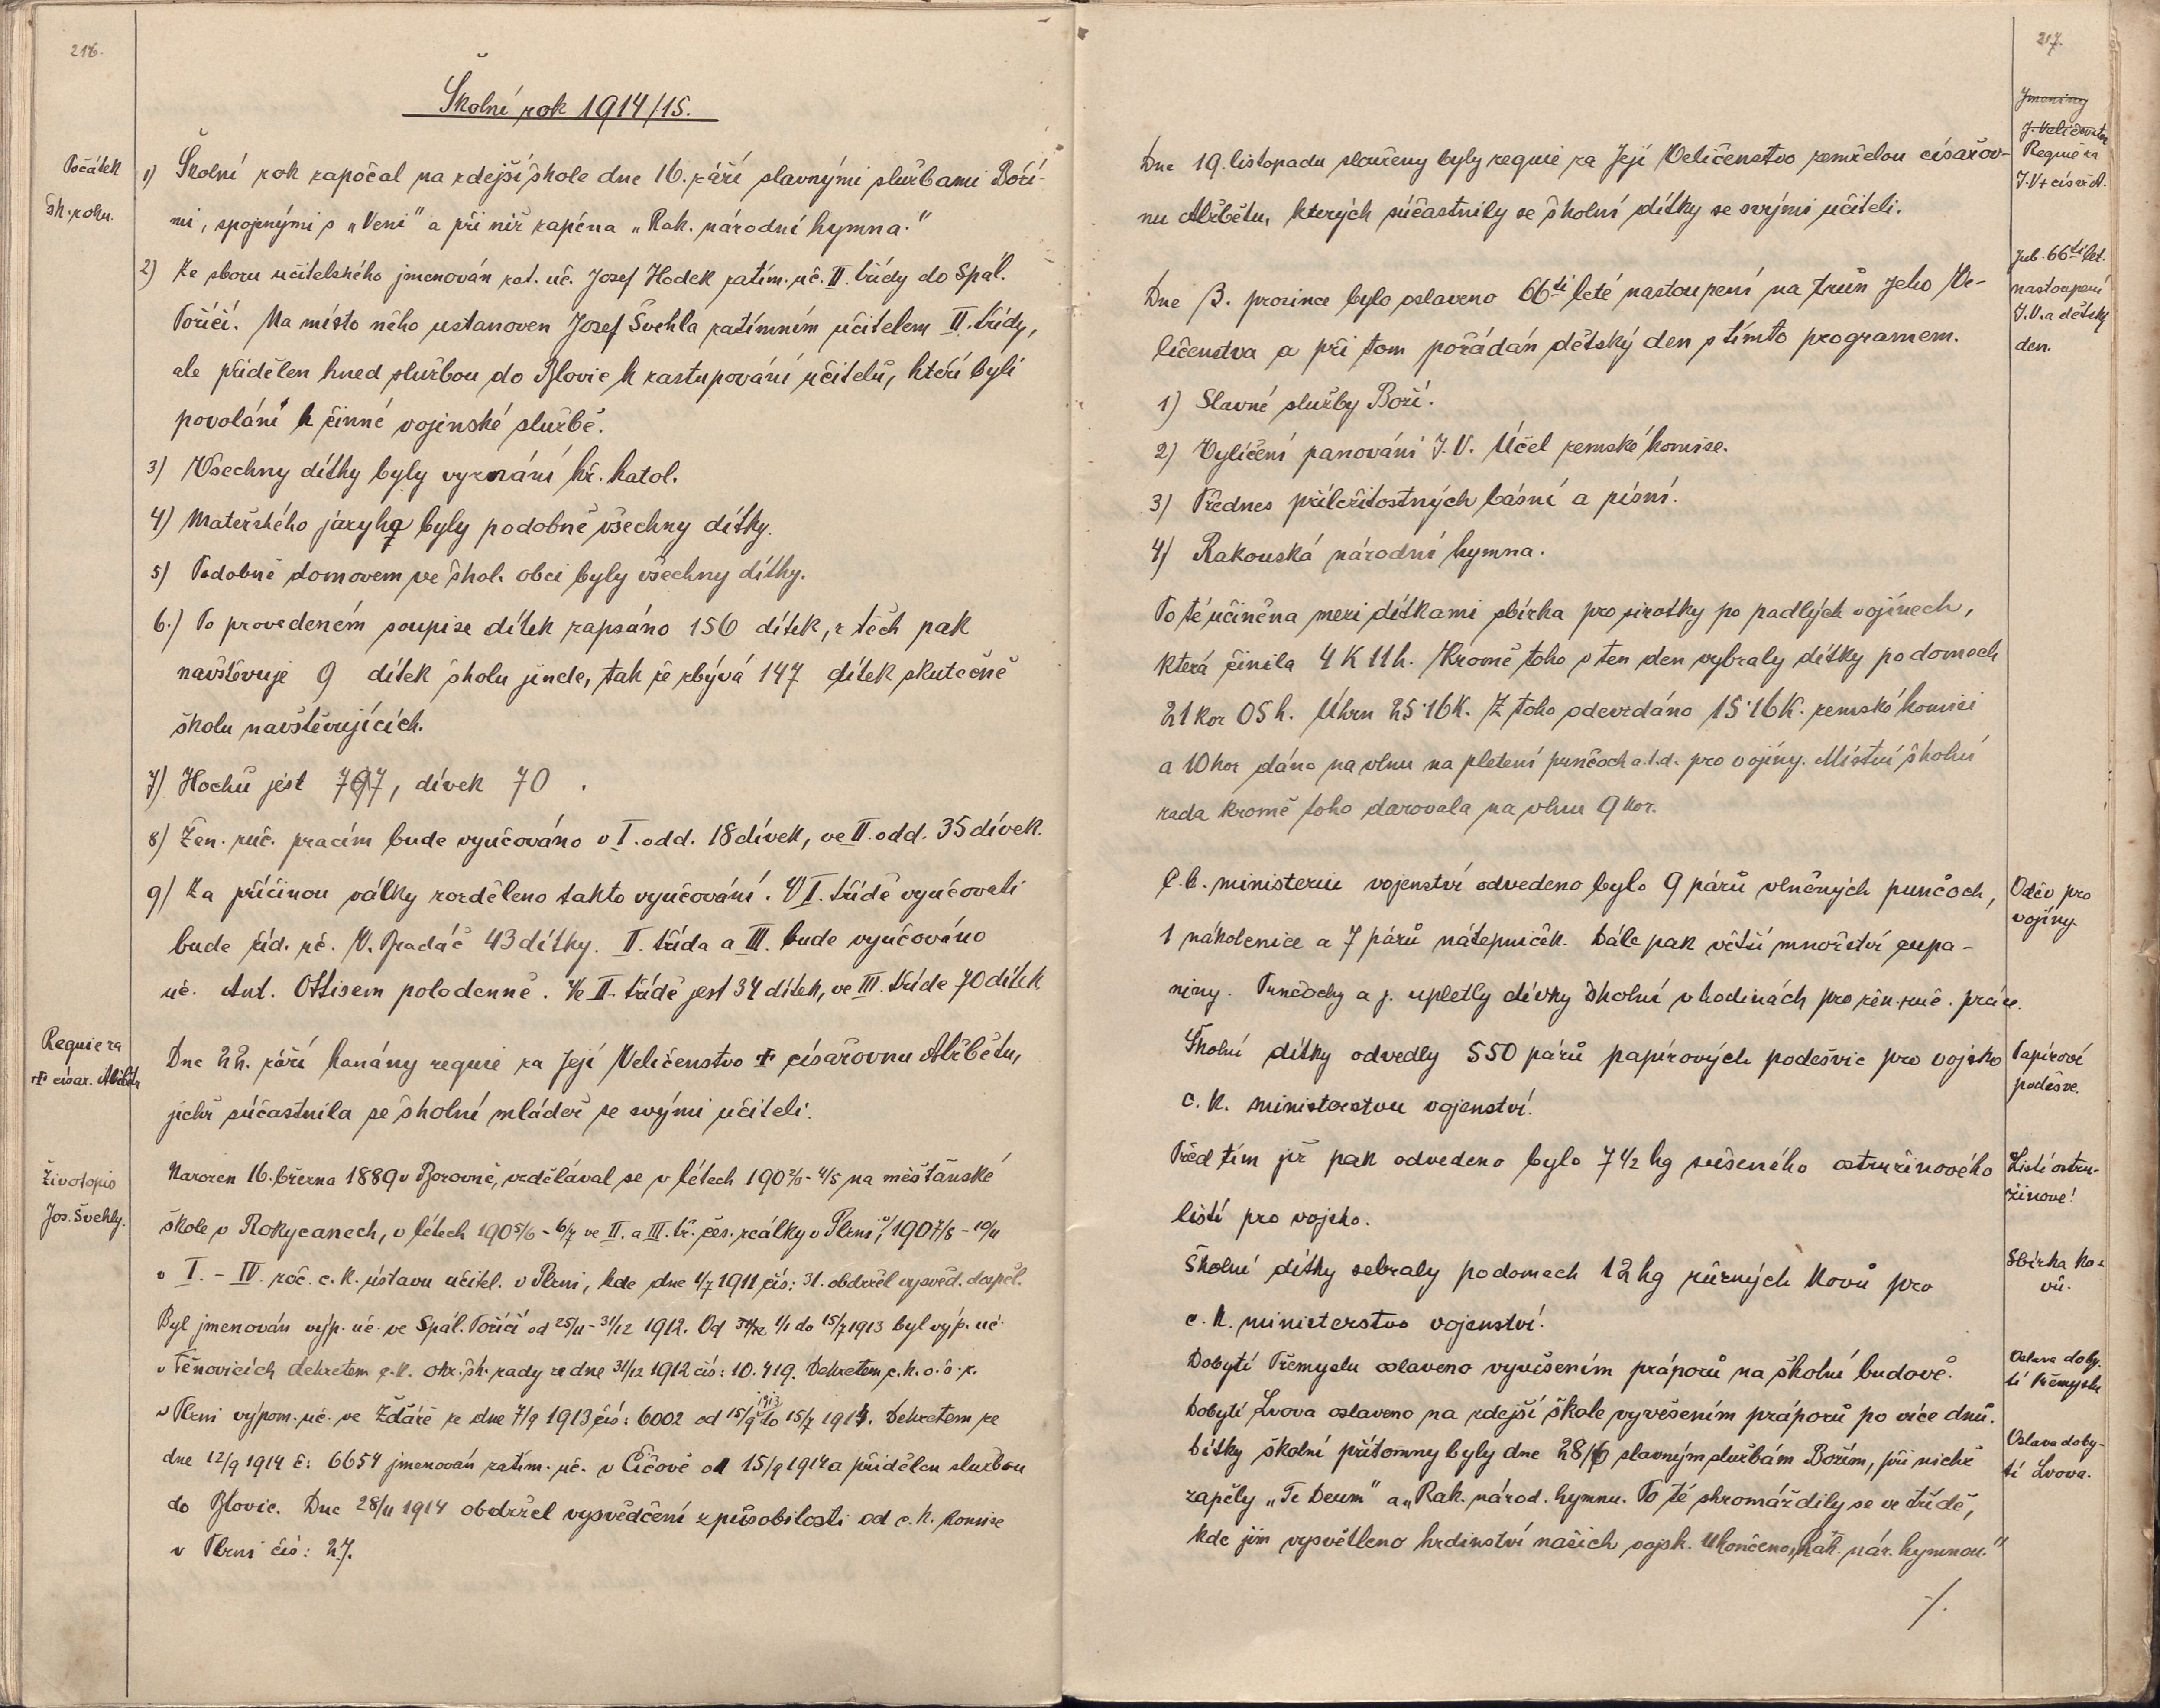 216.
Školní rok 1914/15.
Počátek
šk. roku.
1) Školní rok započal na zdejší škole dne 16. září slavnými službami Boží-
mi, spojenými s „Veni" a při níž zapěna „Rak. národní hymna."
2) Ze sboru učitelského jmenován zat. uč. Josef Hodek zatím. uč. II. třídy do Spál.
Poříčí. Na místo něho ustanoven Josef Švehla zatímním učitelem II. třídy,
ale přidělen hned službou do Blovic k zastupování učitelů, kteří byli
povoláni k činné vojenské službě.
3) Všechny dítky byly vyznání ř. katol.
4) Mateřského jazyka byly podobně všechny dítky.
5) Podobně domovem ve škol. obci byly všechny dítky.
6.) Po provedeném soupise dítek zapsáno 156 dítek, z těch pak
navštěvuje 9 dítek školu jinde, tak že zbývá 147 dítek skutečně
školu navštěvujících.
7) Hochů jest 77, dívek 70.
8) Žen. ruč. pracím bude vyučováno v I. odd. 18 dívek, ve II. odd. 35 dívek.
9) Za příčinou války rozděleno takto vyučování. V I. třídě vyučovati
bude říd. uč. V. Bradáč 43 dítky. II. třída a III. bude vyučováno
uč. Ant. Ottisem polodenně. Ve II. třídě jest 34 dítek, ve III. třídě 70 dítek
Requie za
† císař. Alžbětu
Dne 22. září konány requie za Její Veličenstvo † císařovnu Alžbětu,
jichž súčastnila se školní mládež se svými učiteli.
Životopis
Jos. Švehly.
Narozen 16. března 1889 v Borovně, vzdělával se v létech 1902/3-4/5 na měšťanské
škole v Rokycanech, v létech 1905/6-6/7 ve II. a III. tř. čes. reálky v Plzni, v 1907/8-10/11
v I.-IV. roč. c. k. ústavu učitel. v Plzni, kde dne 1/7 1911 čís: 31. obdržel vysvěd. dospěl.
Byl jmenován výp. uč. ve Spál. Poříčí od 25/11-31/12 1912. Od 1/1 do 15/7 1913 byl výp. uč.
v Těnovicích dekretem c. k. okr. šk. rady ze dne 31/12 1912 čís: 10.419. Dekretem c. k. o. š. r.
v Plzni výpom. uč. ve Žďáře ze dne 7/9 1913 čís: 6002 od 15/9 1913 do 15/7 1914. Dekretem ze
dne 12/9 1914 č: 6654 jmenován zatím. uč. v Číčově od 15/9 1914 a přidělen službou
do Blovic. Dne 28/11 1914 obdržel vysvědčení způsobilosti od c. k. komise
v Plzni čís: 27.
217.
Jmeniny
J. Veličenstva
Requie za
J. V. † císař. A.
Dne 19. listopadu slouženy byly requie za Její Veličenstvo zemřelou císařov-
nu Alžbětu, kterých súčastnily se školní dítky se svými učiteli.
Jub. 66ti let.
nastoupení
J. V. a dětský
den.
Dne 3. prosince bylo oslaveno 66ti leté nastoupení na trůn Jeho Ve-
ličenstva a při tom pořádán dětský den s tímto programem.
1) Slavné služby Boží.
2) Vylíčení panování J. V. Účel zemské komise.
3) Přednes příležitostných básní a písní.
4) Rakouská národní hymna.
Po té učiněna mezi dítkami sbírka pro sirotky po padlých vojínech,
která činila 4 K 11 h. Kromě toho v ten den vybraly dítky po domech
21 kor 05 h. Úhrn 25·16 K. Z toho odevzdáno 15·16 K. zemské komisi
a 10 kor dáno na vlnu na pletení punčoch a. t. d. pro vojíny. Místní školní
rada kromě toho darovala na vlnu 9 kor.
Oděv pro
vojíny.
C. k. ministeriu vojenství odvedeno bylo 9 párů vlněných punčoch,
1 nákolenice a 7 párů nátepniček. Dále pak větší množství cupa-
niny. Punčochy a j. upletly dívky školní v hodinách pro žen. ruč. práce.
Papírové
podešve.
Školní dítky odvedly 550 párů papírových podešvic pro vojsko
c. k. ministerstvu vojenství.
Listí ostru-
žinové!
Před tím již pak odvedeno bylo 7 1/2 kg sušeného ostružinového
listí pro vojsko.
Sbírka ko-
vů.
Školní dítky sebraly po domech 12 kg různých kovů pro
c. k. ministerstvo vojenství.
Oslava doby-
tí Přemyslu
Dobytí Přemyslu oslaveno vyvěšením práporů na školní budově.
Dobytí Lvova oslaveno na zdejší škole vyvěšením práporů po více dnů.
Oslava doby-
tí Lvova.
Dítky školní přítomny byly dne 28/6 slavným službám Božím, při nichž
zapěly „Te Deum" a „Rak. národ. hymnu. Po té shromáždily se ve třídě,
kde jim vysvětleno hrdinství našich vojsk. Ukončeno „Rak. nár. hymnou."
./.